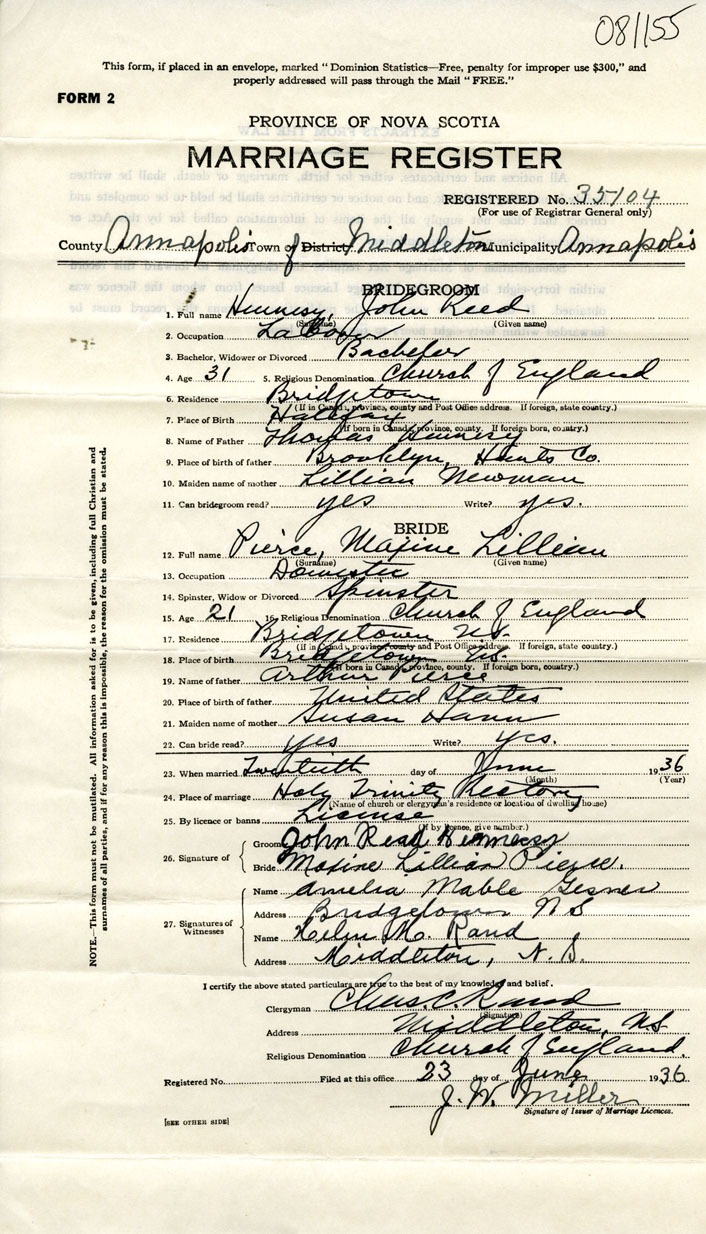 08/155
This form, if placed in an envelope, marked "Dominion Statistics—Free, penalty for improper use $300," and
properly addressed will pass through the Mail "FREE."
FORM 2
PROVINCE OF NOVA SCOTIA
MARRIAGE REGISTER
REGISTERED No. 35104
(For use of Registrar General only)
County Annapolis Town of District Middleton Municipality Annapolis
BRIDEGROOM
1. Full name Hennesy, John Reed
(Surname) (Given name)
2. Occupation Labover
3. Bachelor, Widower or Divorced Bachelor
4. Age 31 5. Religious Denomination Church of England
6. Residence Bridgetown
(If in Canada, province, county and Post Office address. If foreign, state country.)
7. Place of Birth Halifax
(If born in Canada, province, county. If foreign born, country.)
8. Name of Father Thomas Hennesy
9. Place of birth of father Brooklyn, Hants Co.
10. Maiden name of mother Lillian Newman
11. Can bridegroom read? yes Write? yes.
BRIDE
12. Full name Pierce, Maxine Lillian
(Surname) (Given name)
13. Occupation Domestic
14. Spinster, Widow or Divorced Spinster
15. Age 21 16. Religious Denomination Church of England
17. Residence Bridgetown N.S.
(If in Canada, province, county and Post Office address. If foreign, state country.)
18. Place of birth Bridgetown N.S.
(If born in Canada, province, county. If foreign born, country.)
19. Name of father Arthur Pierce
20. Place of birth of father United States
21. Maiden name of mother Susan Hann
22. Can bride read? yes Write? yes.
23. When married Twentieth day of June 1936
(Month) (Year)
24. Place of marriage Holy Trinity Rectory
(Name of church or clergyman's residence or location of dwelling house)
25. By licence or banns License
(If by licence, give number.)
26. Signature of Groom John Read Hennessy
Bride Maxine Lillian Pierce.
27. Signatures of Witnesses
Name Amelia Mable Gesner
Address Bridgetown NS
Name Helen M. Rand
Address Middleton, N.S.
I certify the above stated particulars are true to the best of my knowledge and belief.
Clergyman Chas. C. Rand
(Signature)
Address Middleton, N.S.
Religious Denomination Church of England.
Registered No. Filed at this office 23 day of June 1936
J. W. Miller
Signature of Issuer of Marriage Licences.
[SEE OTHER SIDE]
NOTE.—This form must not be mutilated. All information asked for is to be given, including full Christian and
surnames of all parties, and if for any reason this is impossible, the reason for the omission must be stated.